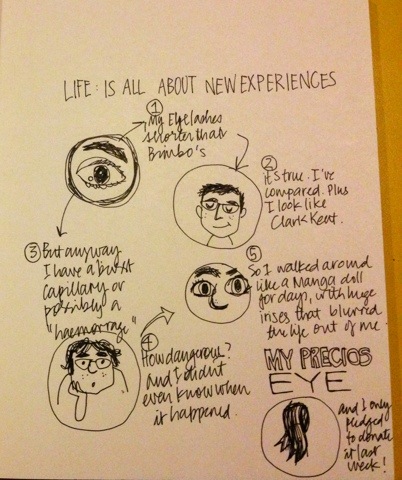 LIFE: IS ALL ABOUT NEW EXPERIENCES
1
My Eyelashes
shorter than
Bimbo's
2
it's true. I've
compared. Plus
I look like
Clark Kent.
3
But anyway
I have a burst
capillary or
possibly a
"haemorrage"
4
How dangerous?
And I didnt
even know when
it happened.
5
So I walked around
like a Manga doll
for days, with huge
irises that blurred
the life out of me.
MY PRECIOS
EYE
and I only
pledged
to donate
it last
week!